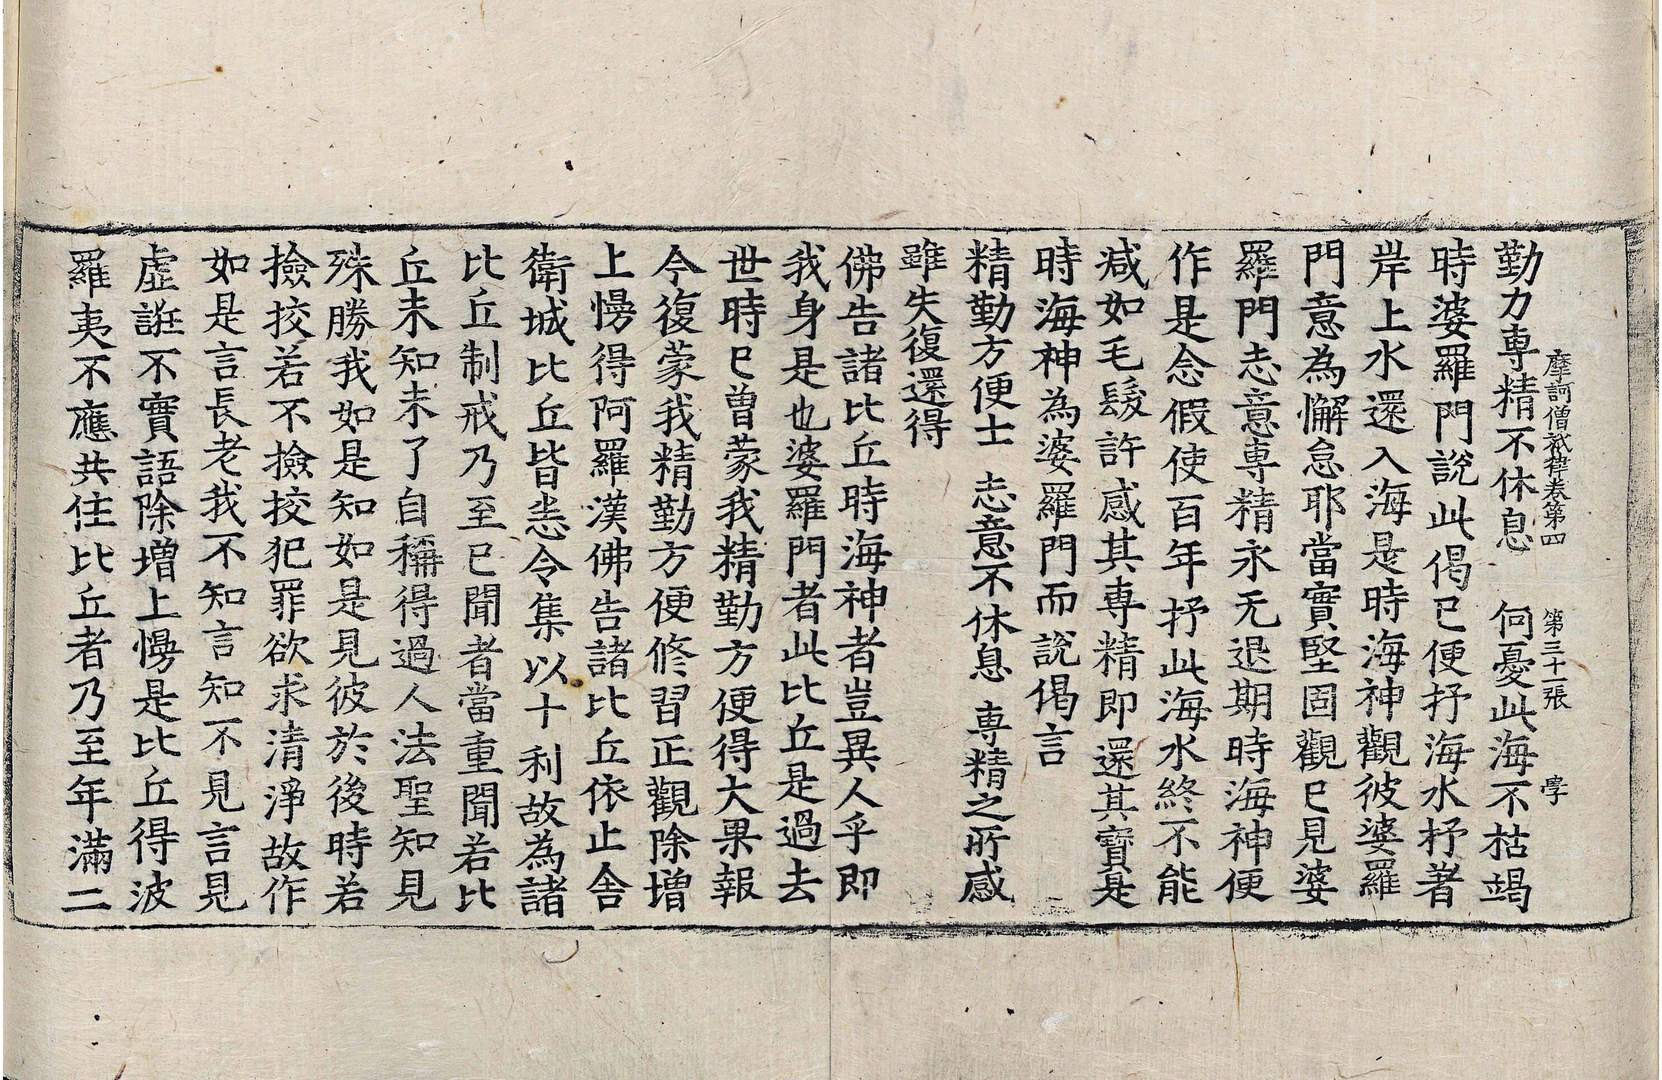 摩訶僧祇律卷第四　第三十一張　學
勤力專精不休息　何憂此海不枯竭
時婆羅門說此偈已便抒海水抒著
岸上水還入海是時海神觀彼婆羅
門意為懈怠耶當實堅固觀已見婆
羅門志意專精永无退期時海神便
作是念假使百年抒此海水終不能
减如毛髮許感其專精即還其寶是
時海神為婆羅門而說偈言
精勤方便士　志意不休息　專精之所感
雖失復還得
佛告諸比丘時海神者豈異人乎即
我身是也婆羅門者此比丘是過去
世時已曾蒙我精勤方便得大果報
今復蒙我精勤方便修習正觀除增
上慢得阿羅漢佛告諸比丘依止舍
衛城比丘皆悉令集以十利故為諸
比丘制戒乃至已聞者當重聞若比
丘未知未了自稱得過人法聖知見
殊勝我如是知如是見彼於後時若
撿挍若不撿挍犯罪欲求清淨故作
如是言長老我不知言知不見言見
虛誑不實語除增上慢是比丘得波
羅夷不應共住比丘者乃至年滿二